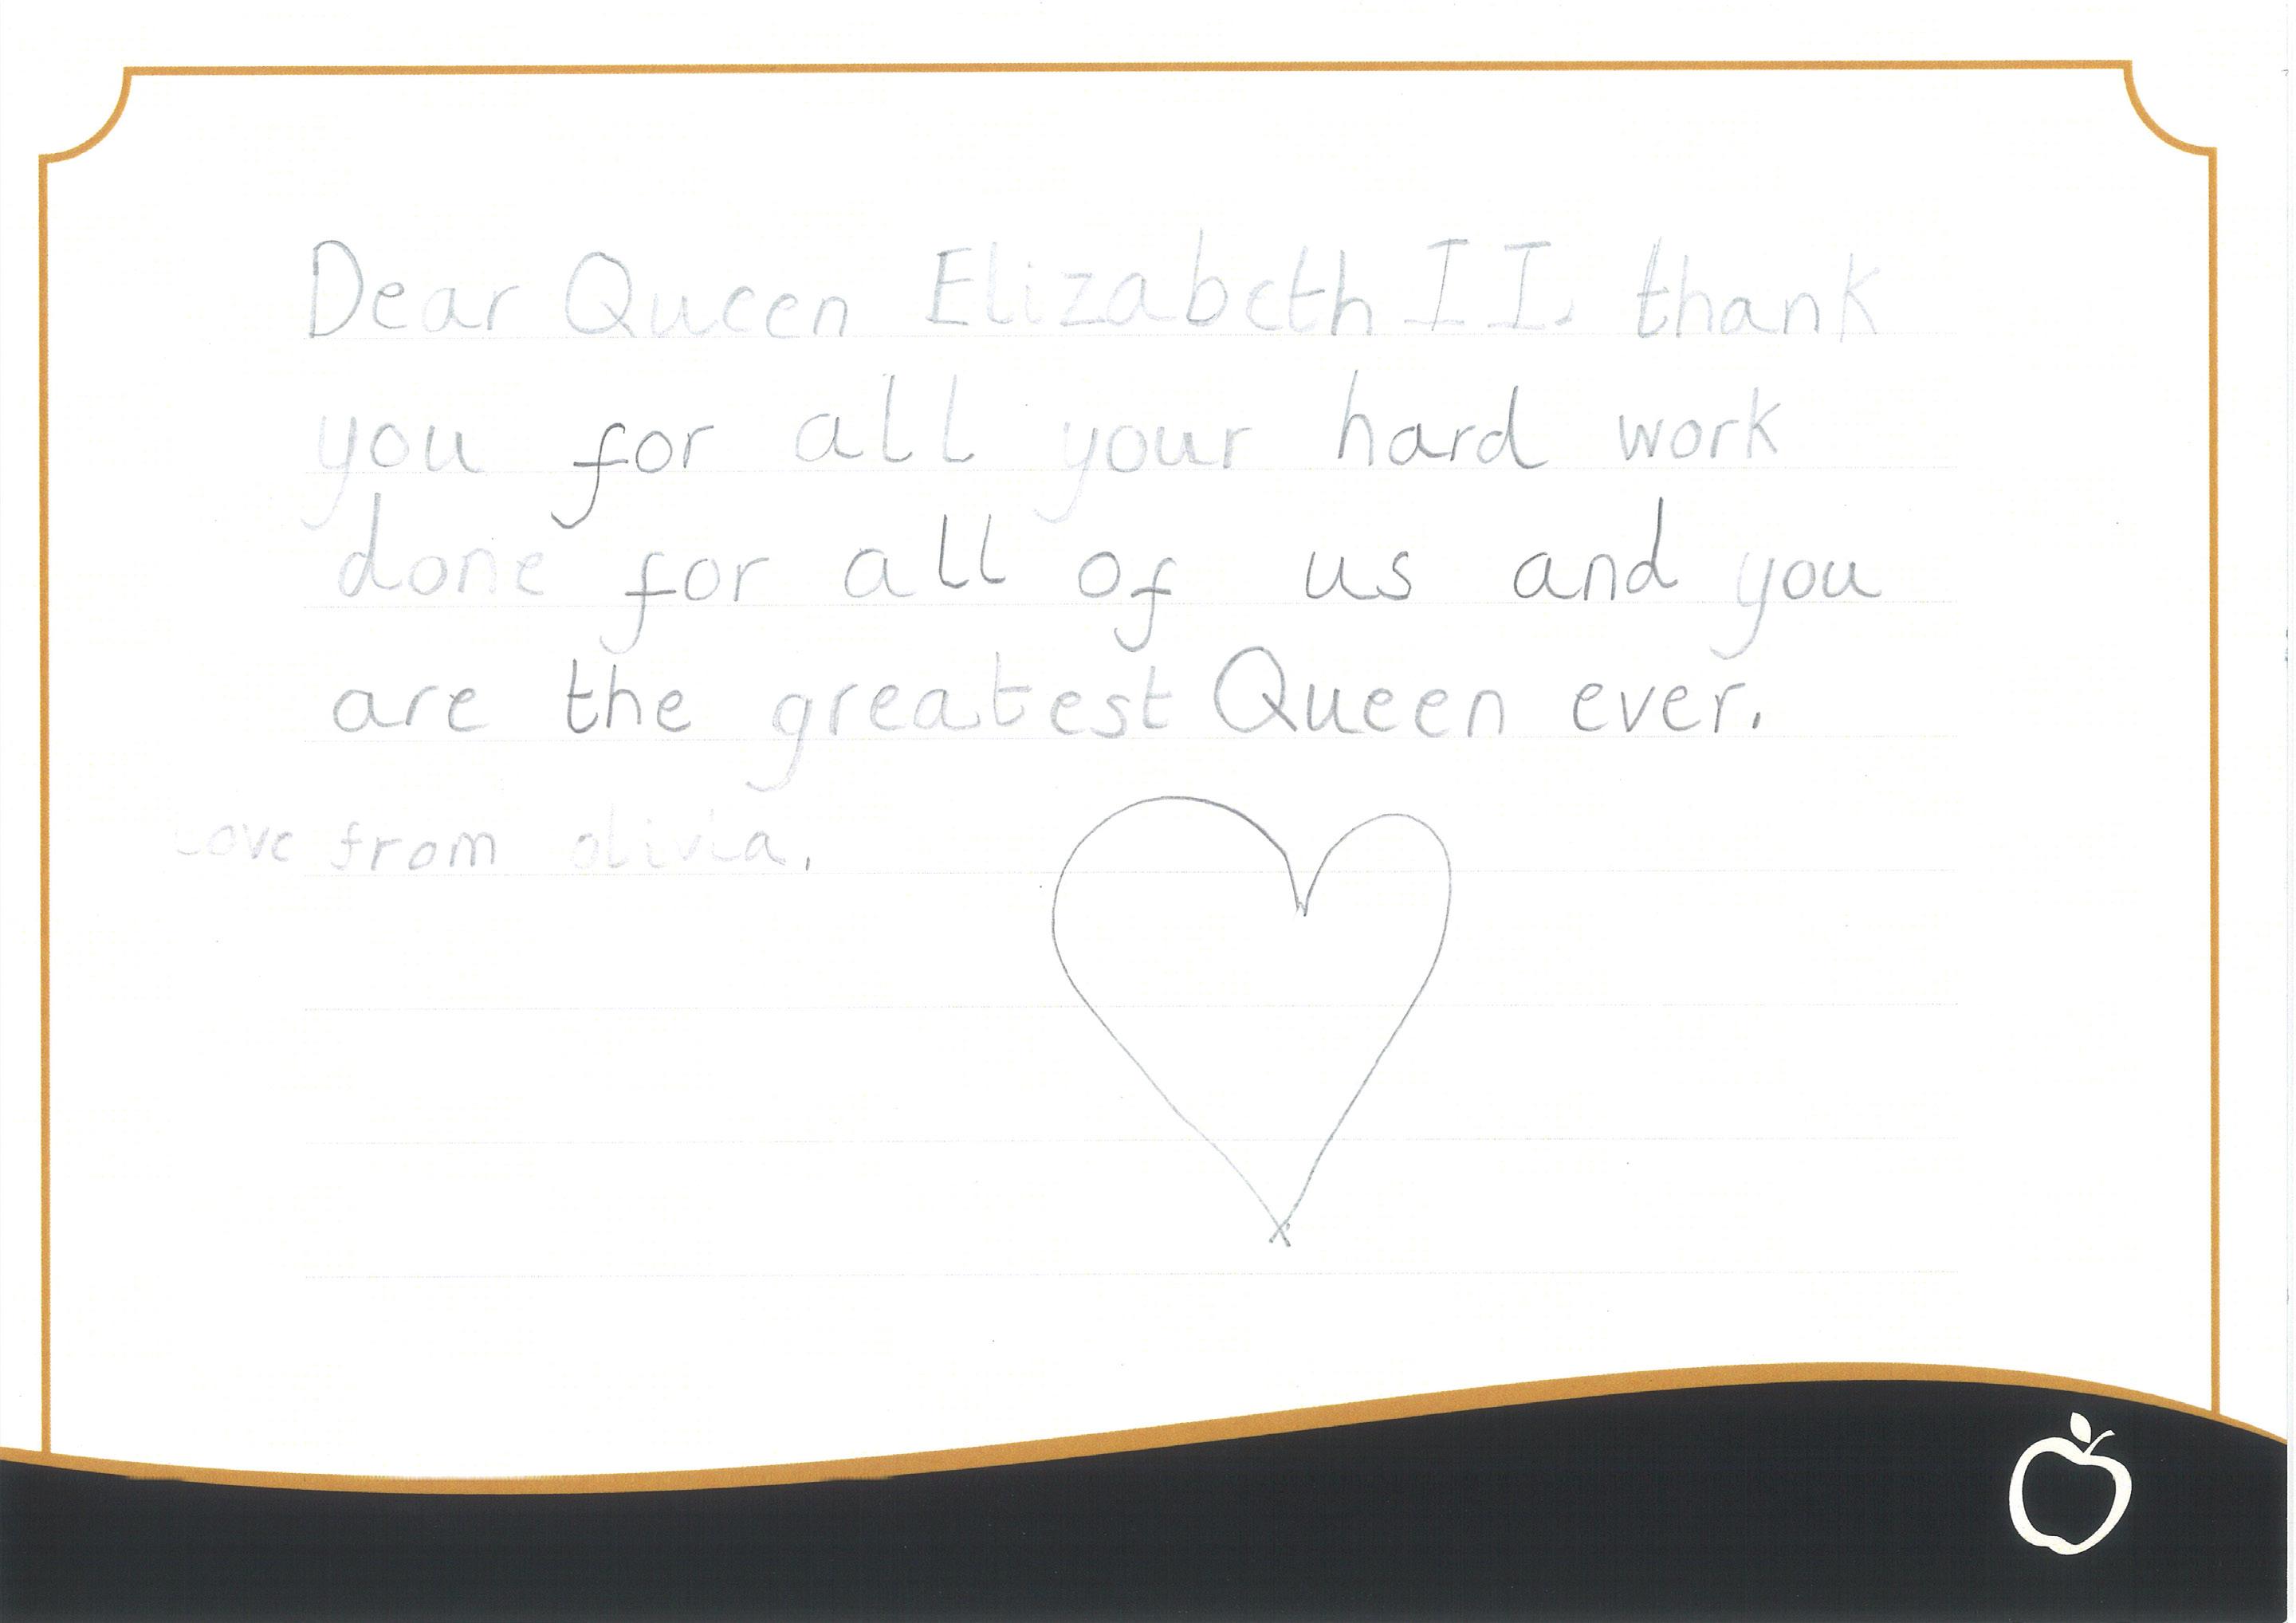 Dear Queen Elizabeth II. thank
you for all your hard work
done for all of us and you
are the greatest Queen ever.
Love from olivia.